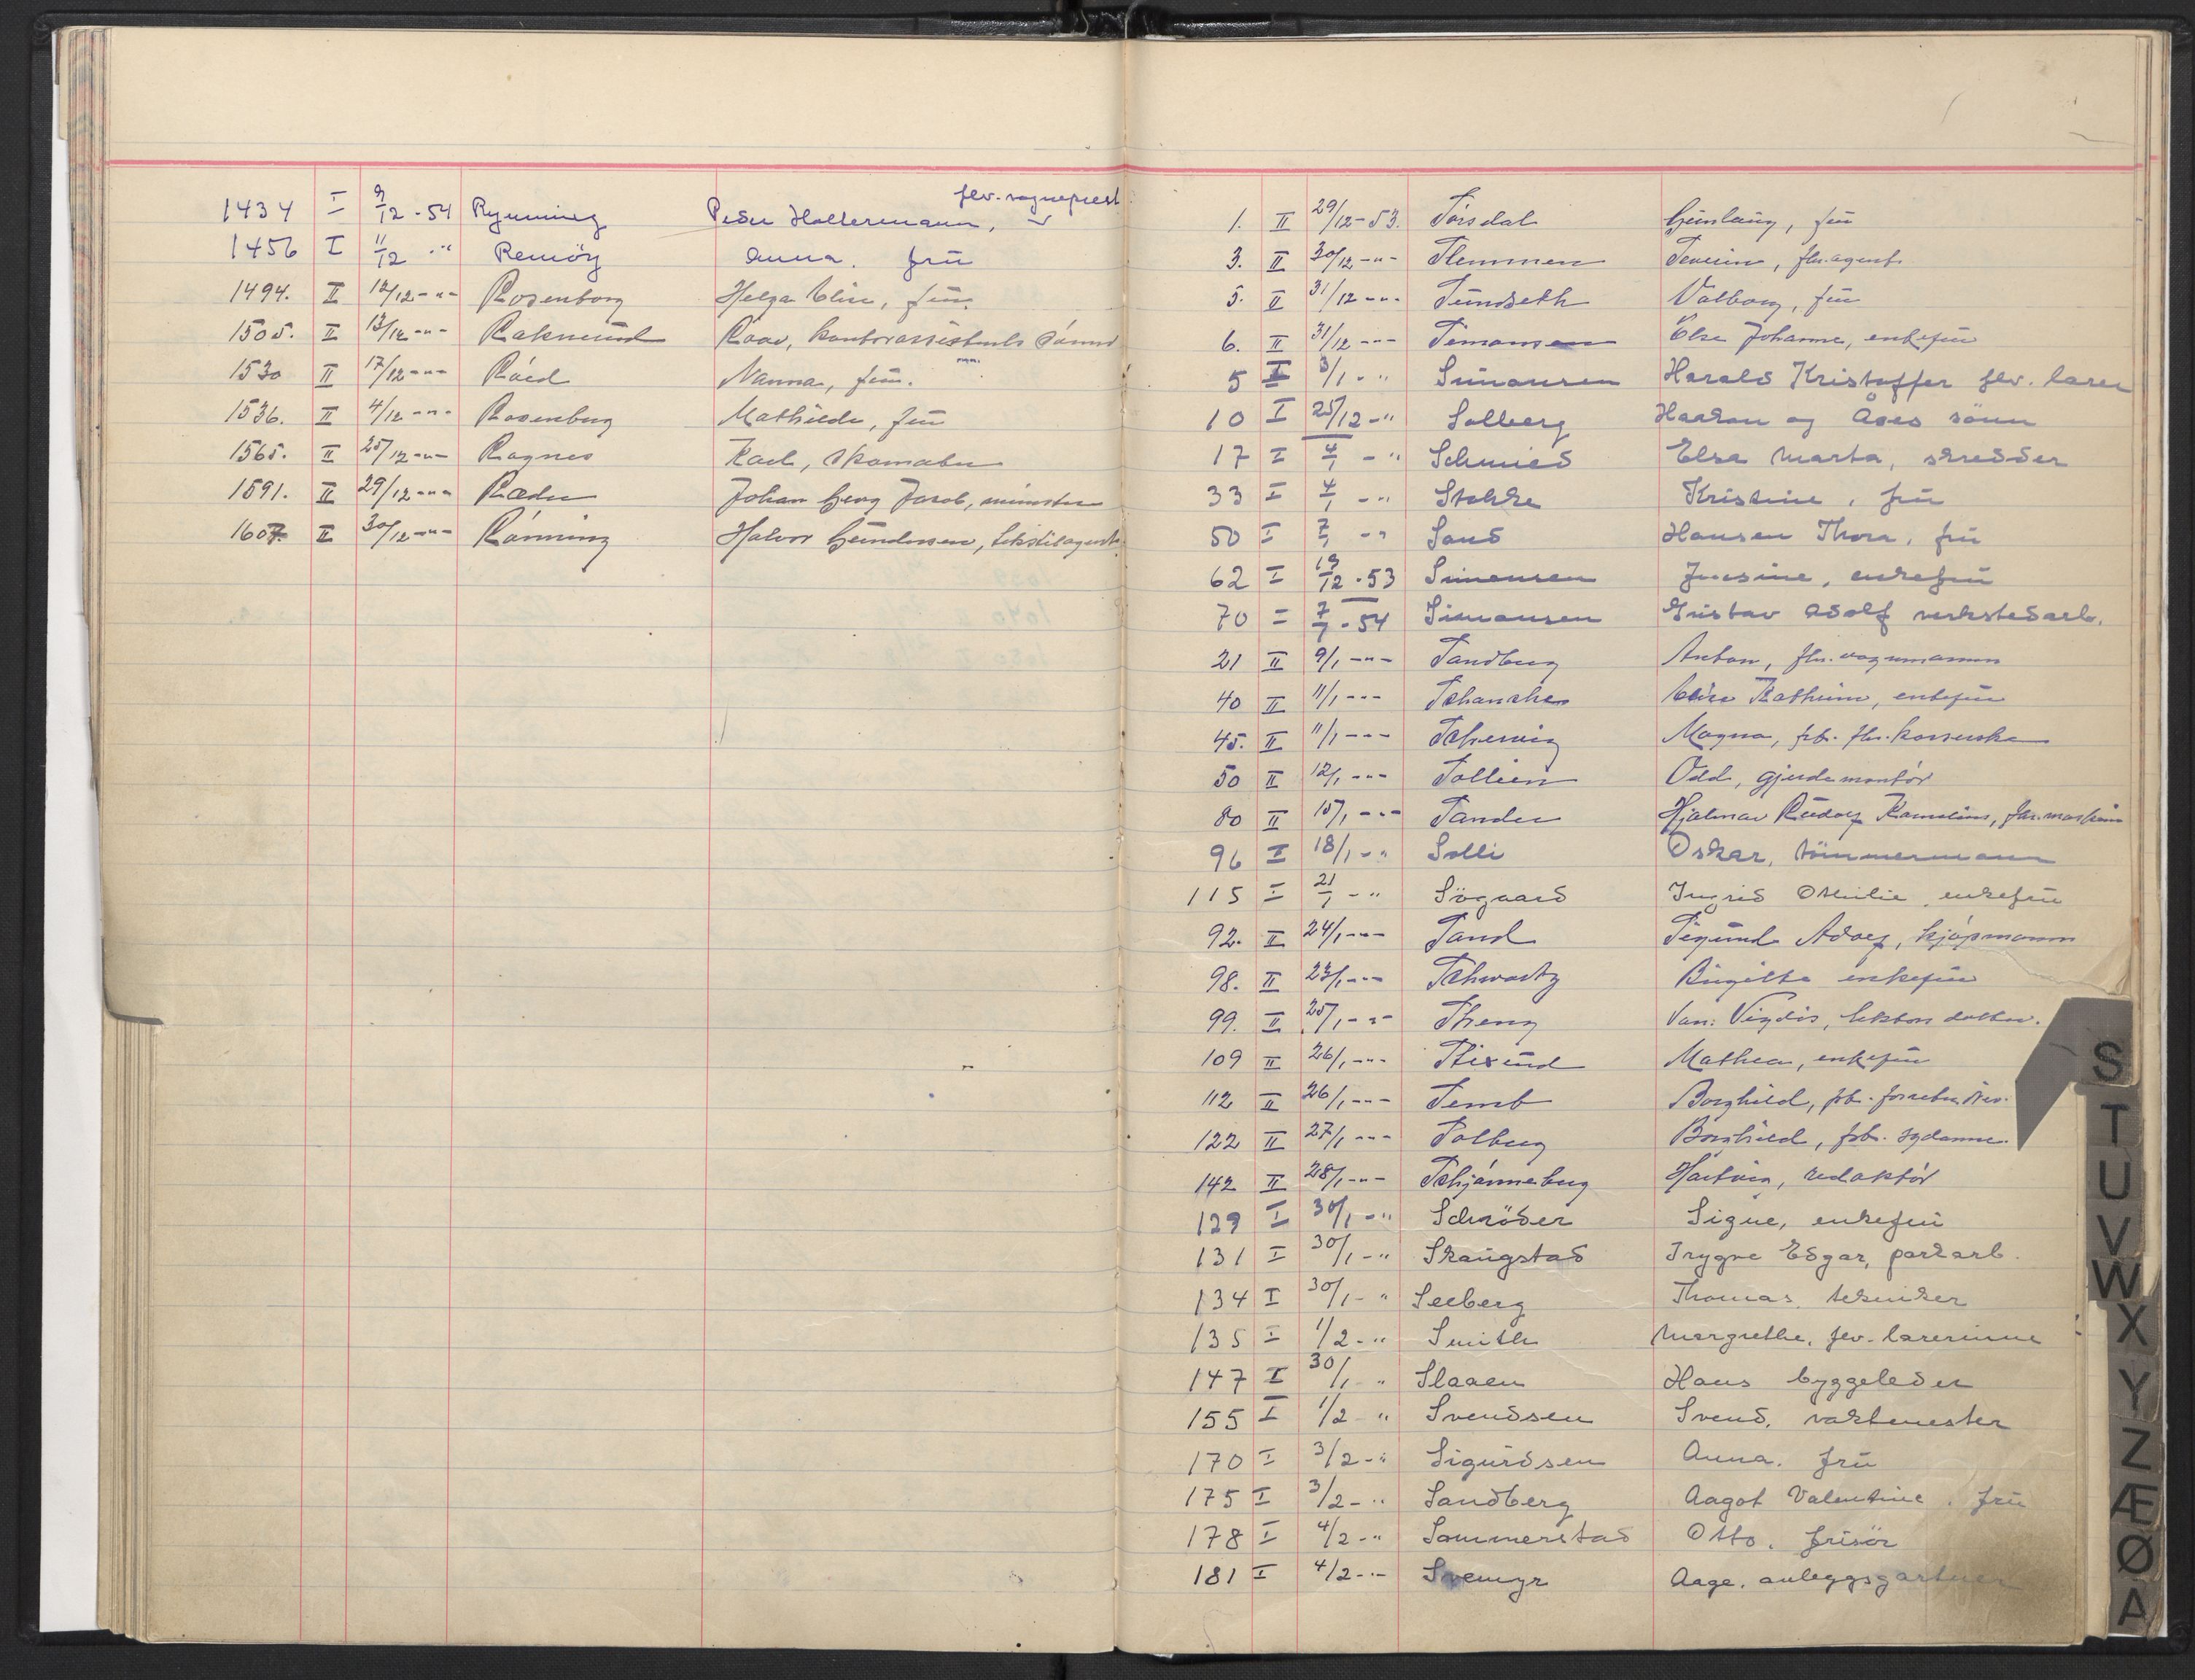 1434 I 9/12-54 Rynning Peder Holtermann, fhv. sogneprest
1456 I 11/12 -" Remöy Anna. frü
1494. II 12/12-"- Rosenborg Helga Elise, frü
1505. II 13/12-"- Raknerud Roar, kontorassistents sønn
1530 II 17/12-"- Røed Nanna, frü.
1536. II 4/12-"- Rosenberg Mathilde, frü
1565. II 25/12-"- Ragnes Karl, skomaker
1591. II 29/12-"- Ræder Johan Georg Jacob, minister
1607. II 30/12-"- Rønning Halvor Gündersen, tekstilagent
1. II 29/12-53. Sørsdal Günlaüg, frü
3. II 30/12-"- Slemmen Severin, fhv. agent
5. II 31/12-"- Sündseth Valborg, frü
6. II 31/12-"- Simonsen Else Johanne, enkefrü
5 I 3/1 - " Simonsen Harald Kristoffer fhv. lærer
10 I 25/12-" Solberg Haakon og Åses sönn
17 I 4/1 - " Schmied Elsa Marta, skredder
33 I 4/1 - " Stokke Kristine, frü
50 I 7/1 - " Sand Hansen Thora, frü
62 I 19/12-53 Simensen Josine, enkefrü
70 I 7/1-54 Simonsen Güstav Adolf verkstedarb.
21 II 9/1-"- Sandberg Anton, fhv. vognmann
40 II 11/1-"- Schanche Elise Kathrine, enkefrü
45. II 11/1-"- Schrøning Magna, frk. fhv.
50 II 12/1-"- Sollien Odd, gjerdemontør
80 II 15/1-"- Sander Hjalmar Rüdolf Kornelius, fhv. maskin
96 I 18/1-" Solli Oskar, tömmermann
115 I 21/1 - " Sögaard Ingrid Othilie, enkefrü
92. II 24/1-"- Sand Sigünd Adolf, kjøpmann
98. II 23/1-"- Schwartz Birgitte enkefrü
99. II 25/1-"- Streng Van: Vigdis, lektors datter.
109 II 26/1-"- Stixrüd Mathea, enkefrü
112 II 26/1-"- Semb Borghild, frk.
122 II 27/1-"- Solberg Borghild, frk. sydame.
142 II 28/1-"- Schjønneberg Hartvig, redaktør
129 I 30/1-" Schröder Signe, enkefrü
131 I 30/1-" Skaügstad Trygve Edgar, parkarb.
134 I 30/1-" Seeberg Thomas. tekniker
135 I 1/2-" Smith Margrethe. fhv. lærerinne
147 I 30/1 " Slaaen Hans byggeleder
155 I 1/2 " Svendsen Svend. vaktmester
170 I 3/2-" Sigurdsen Anna. frü
175 I 3/2-" Sandberg Aagot Valentine. frü
178 I 4/2-" Sommerstad Otto. frisör
181 I 4/2-" Svemyr Aage. anleggsgartner
S
T
U
V
W
X
Y
Z
Æ
Ø
A